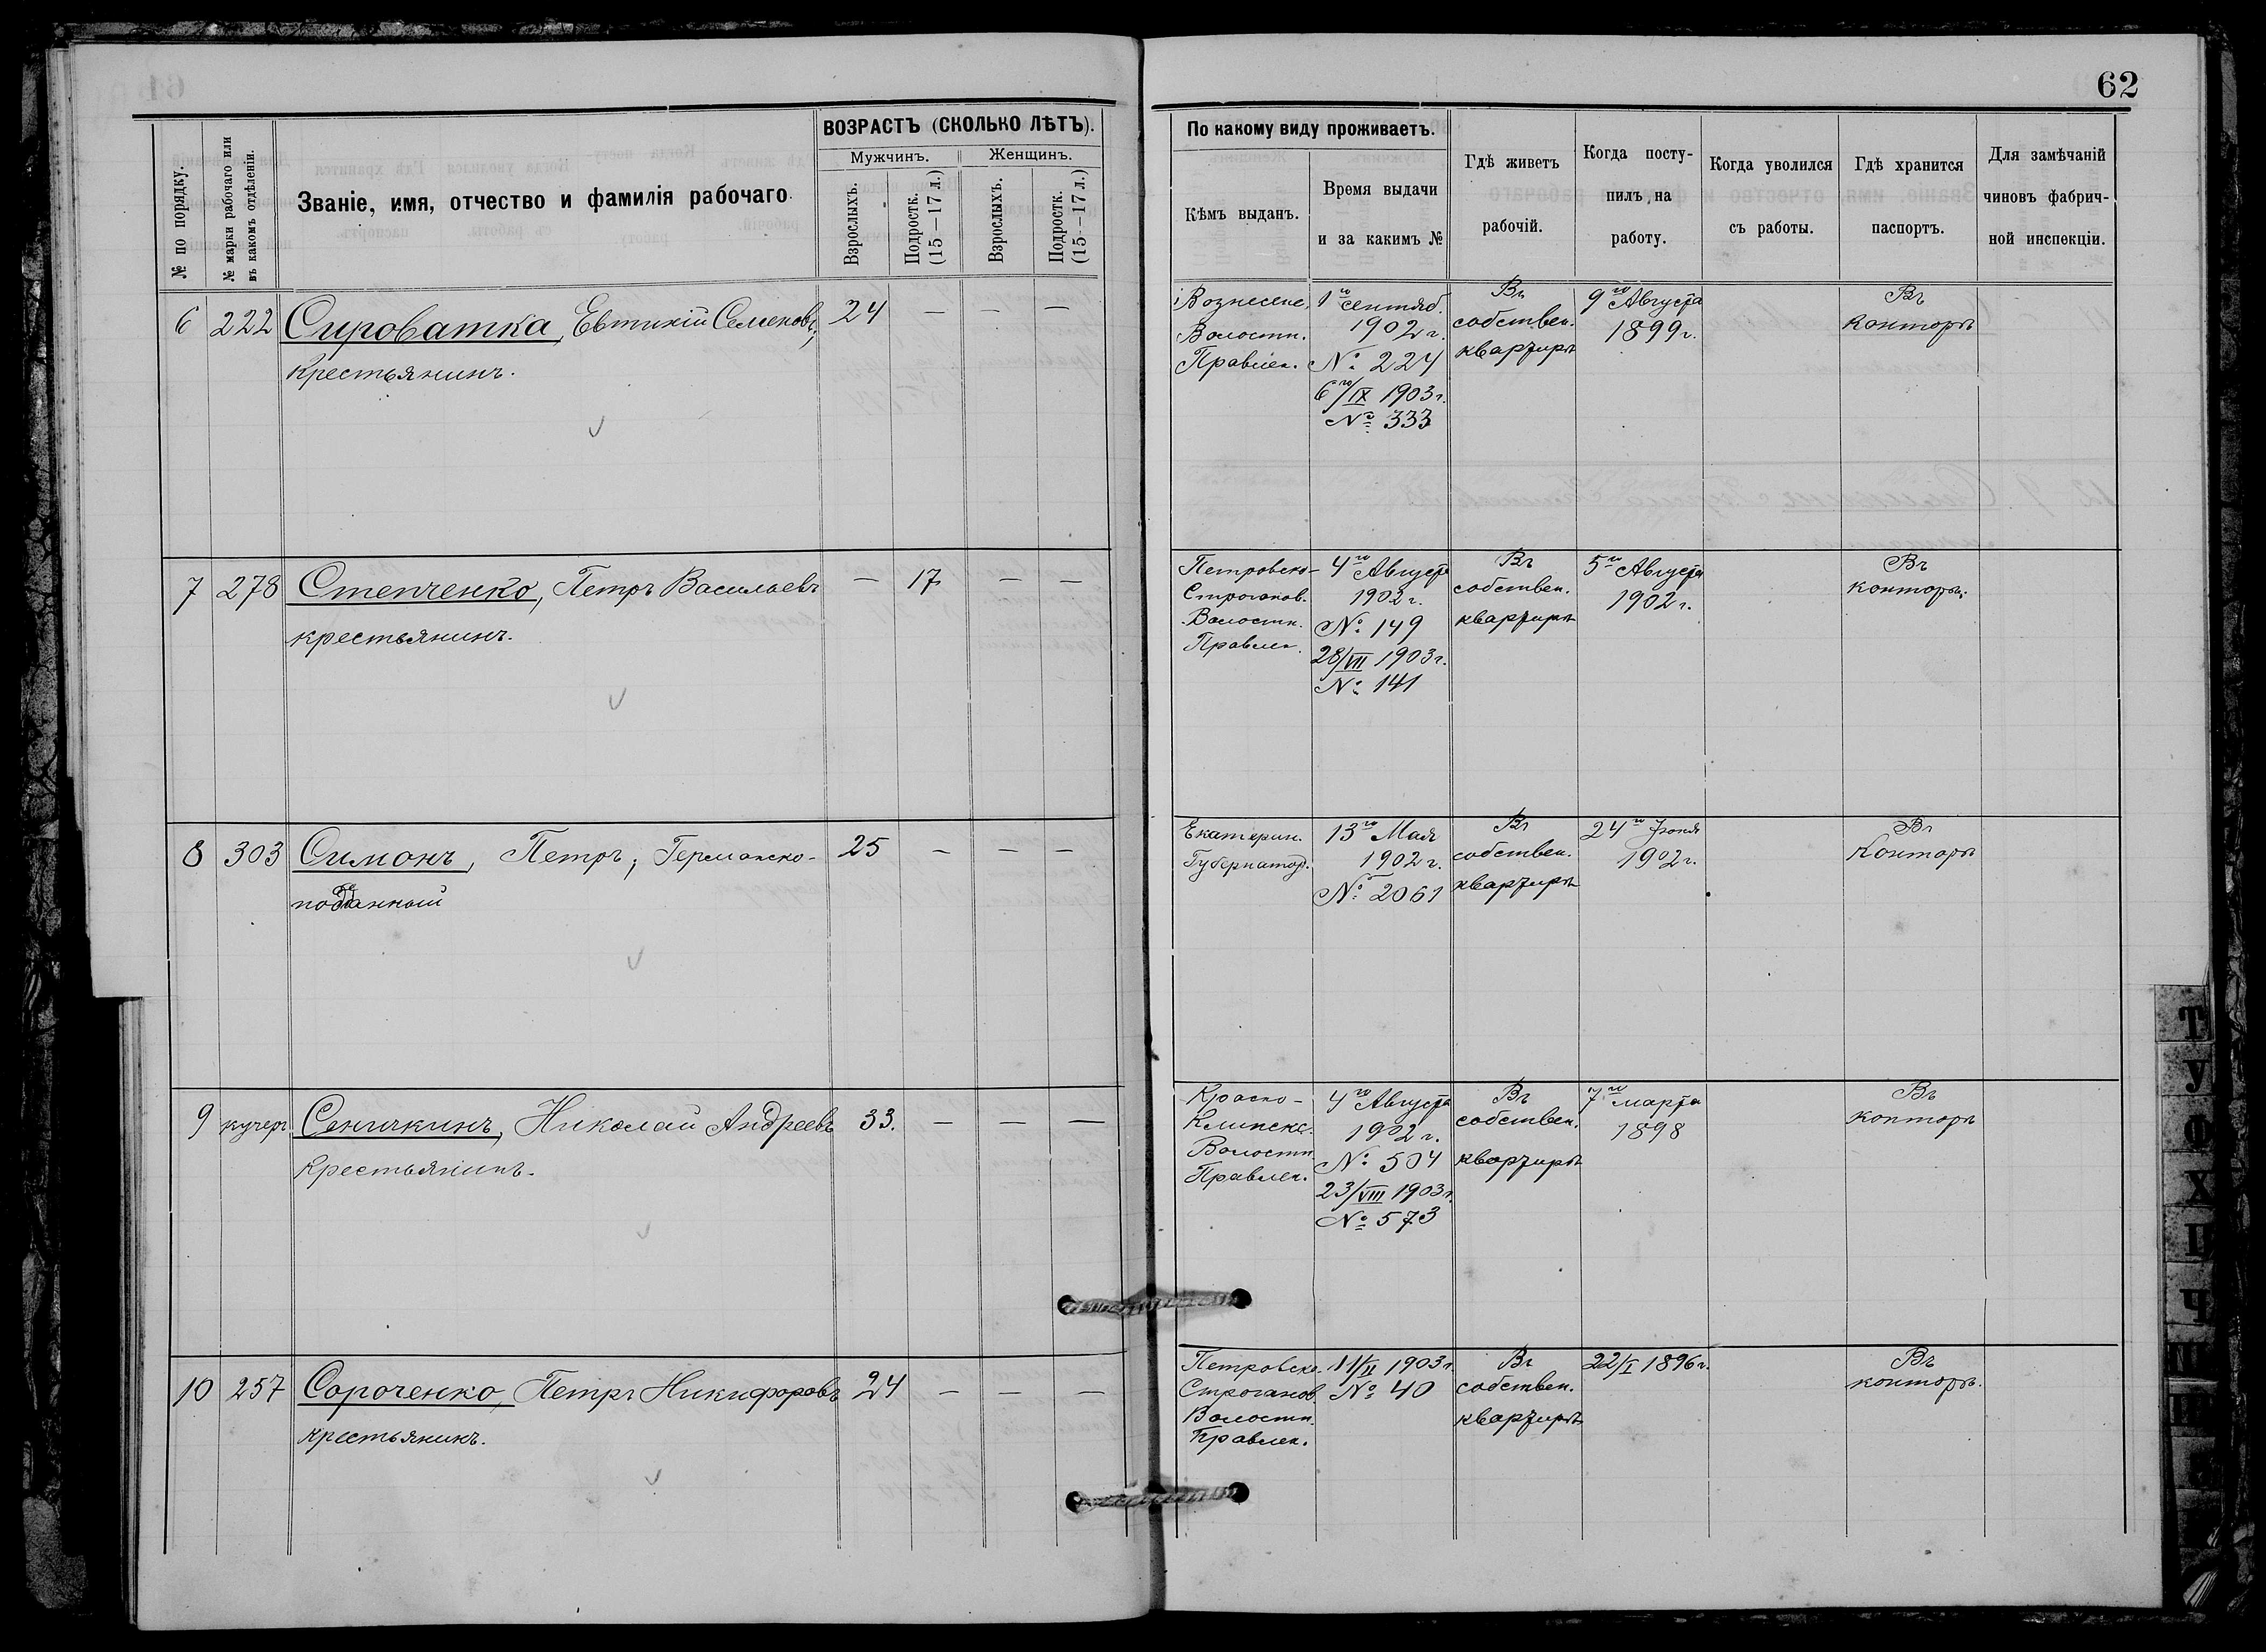 62
№ по порядку.
№ марки рабочаго или въ какомъ отдѣленіи.
Званіе, имя, отчество и фамилія рабочаго.
ВОЗРАСТЪ (СКОЛЬКО ЛѢТЪ).
Мужчинъ.
Женщинъ.
Взрослыхъ.
Подростк. (15—17 л.)
Взрослыхъ.
Подростк. (15—17 л.)
По какому виду проживаетъ.
Кѣмъ выданъ.
Время выдачи
и за какимъ №
Гдѣ живетъ
рабочій.
Когда посту-
пилъ на
работу.
Когда уволился
съ работы.
Гдѣ хранится
паспортъ.
Для замѣчаній
чиновъ фабрич-
ной инспекціи.
6 222 Сироватка, Евтихій Семеновъ, 24 — — —
крестьянинъ.
Вознесенс.
Волостн.
Правлен.
1го Сентяб.
1902 г.
№ 224
6го/IX 1903 г.
№ 333
Въ
собствен.
квартирѣ
9го Августа
1899 г.
Въ
Конторѣ
7 278 Степченко, Петръ Васильевъ — 17 — —
крестьянинъ.
Петровско-
Строганов.
Волостн.
Правлен.
4го Августа
1902 г.
№ 149
28/VII 1903 г.
№ 141
Въ
собствен.
квартирѣ
5го Августа
1902 г.
Въ
конторѣ.
8 303 Симонъ, Петръ, Германско- 25 — — —
подданный
Екатерин.
Губернатор.
13го Мая
1902 г.
№ 2061
Въ
собствен.
квартирѣ
24го Іюня
1902 г.
Въ
Конторѣ
9 кучеръ Сеничкинъ, Николай Андреевъ 33. — — —
крестьянинъ.
Красно-
Клинске.
Волостн.
Правлен.
4го Августа
1902 г.
№ 504
23/VIII 1903 г.
№ 573
Въ
собствен.
квартирѣ
7го марта
1898
Въ
конторѣ
10 257 Сороченко, Петръ Никифоровъ 24 — — —
крестьянинъ.
Петровско
Строганов.
Волостн.
Правлен.
11/II 1903 г.
№ 40
Въ
собствен.
квартирѣ
22/I 1896 г.
Въ
конторѣ.
Т
У
Ф
Х
Ц
Ч